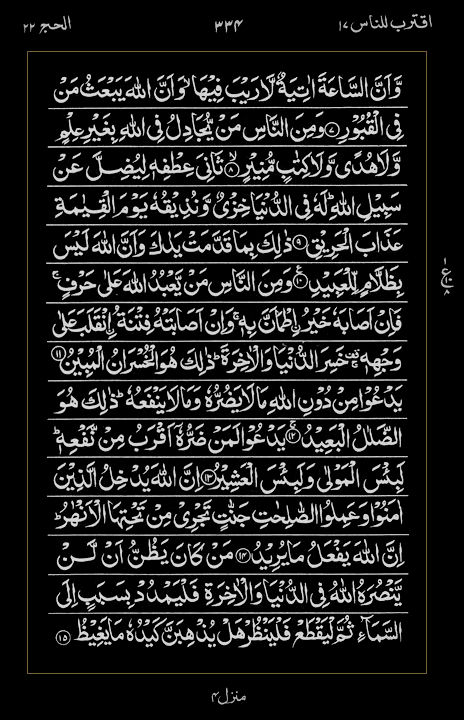 اقترب للناس ۱۷
۳۳۴
الحج ۲۲
وَّاَنَّ السَّاعَةَ اٰتِيَةٌ لَّا رَيْبَ فِيْهَا ۙ وَاَنَّ اللّٰهَ يَبْعَثُ مَنْ
فِى الْقُبُوْرِ ۷ وَمِنَ النَّاسِ مَنْ يُّجَادِلُ فِى اللّٰهِ بِغَيْرِ عِلْمٍ
وَّلَا هُدًى وَّلَا كِتٰبٍ مُّنِيْرٍ ۙ ۸ ثَانِىَ عِطْفِهٖ لِيُضِلَّ عَنْ
سَبِيْلِ اللّٰهِ ؕ لَهٗ فِى الدُّنْيَا خِزْىٌ وَّنُذِيْقُهٗ يَوْمَ الْقِيٰمَةِ
عَذَابَ الْحَرِيْقِ ۹ ذٰلِكَ بِمَا قَدَّمَتْ يَدٰكَ وَاَنَّ اللّٰهَ لَيْسَ
بِظَلَّامٍ لِّلْعَبِيْدِ ۱۰ ع وَمِنَ النَّاسِ مَنْ يَّعْبُدُ اللّٰهَ عَلٰى حَرْفٍ ۚ
فَاِنْ اَصَابَهٗ خَيْرُ ۨاطْمَاَنَّ بِهٖ ۚ وَاِنْ اَصَابَتْهُ فِتْنَةُ ۨانْقَلَبَ عَلٰى
وَجْهِهٖ ۚ خَسِرَ الدُّنْيَا وَالْاٰخِرَةَ ؕ ذٰلِكَ هُوَ الْخُسْرَانُ الْمُبِيْنُ ۱۱
يَدْعُوْا مِنْ دُوْنِ اللّٰهِ مَا لَا يَضُرُّهٗ وَمَا لَا يَنْفَعُهٗ ؕ ذٰلِكَ هُوَ
الضَّلٰلُ الْبَعِيْدُ ۚ ۱۲ يَدْعُوْا لَمَنْ ضَرُّهٗۤ اَقْرَبُ مِنْ نَّفْعِهٖ ؕ
لَبِئْسَ الْمَوْلٰى وَلَبِئْسَ الْعَشِيْرُ ۱۳ اِنَّ اللّٰهَ يُدْخِلُ الَّذِيْنَ
اٰمَنُوْا وَعَمِلُوا الصّٰلِحٰتِ جَنّٰتٍ تَجْرِىْ مِنْ تَحْتِهَا الْاَنْهٰرُ ؕ
اِنَّ اللّٰهَ يَفْعَلُ مَا يُرِيْدُ ۱۴ مَنْ كَانَ يَظُنُّ اَنْ لَّنْ
يَّنْصُرَهُ اللّٰهُ فِى الدُّنْيَا وَالْاٰخِرَةِ فَلْيَمْدُدْ بِسَبَبٍ اِلَى
السَّمَآءِ ثُمَّ لْيَقْطَعْ فَلْيَنْظُرْ هَلْ يُذْهِبَنَّ كَيْدُهٗ مَا يَغِيْظُ ۱۵
۱
ع ۱۰
۸
منزل ۴